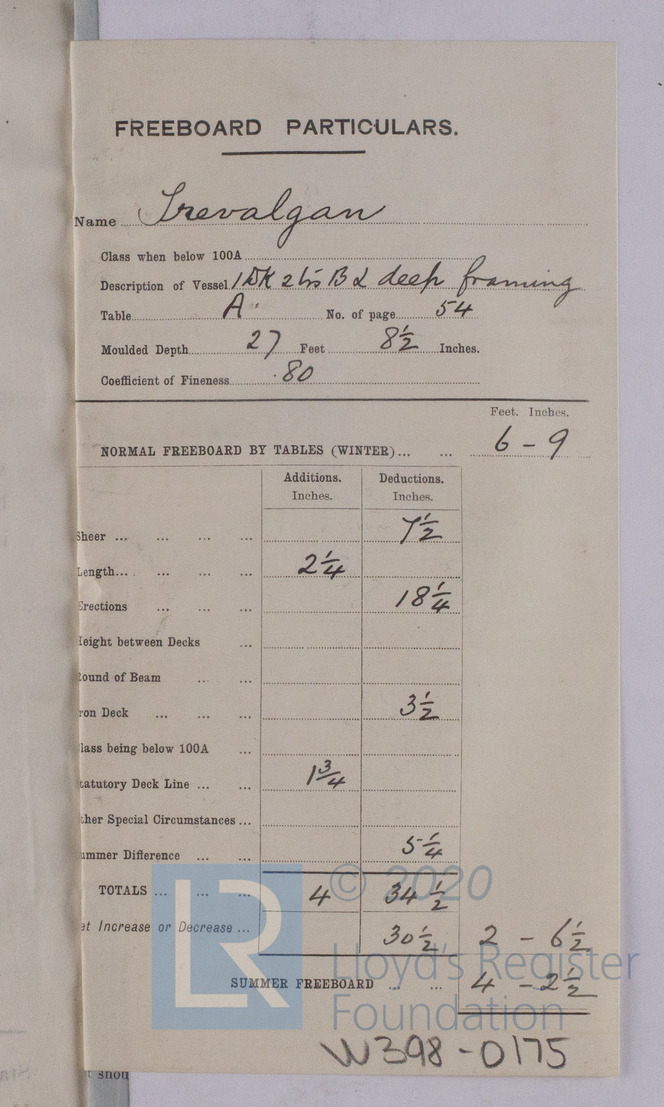 FREEBOARD PARTICULARS.
Name Trevalgan
Class when below 100A
Description of Vessel 1 DK 2 trs B & deep framing
Table A No. of page 54
Moulded Depth 27 Feet 8½ Inches.
Coefficient of Fineness .80
Feet. Inches.
NORMAL FREEBOARD BY TABLES (WINTER) ... ... 6 - 9
Additions. Deductions.
Inches. Inches.
Sheer ... ... ... ... 7½
Length ... ... ... ... 2¼
Erections ... ... ... 18¼
eight between Decks ...
ound of Beam ... ...
ron Deck ... ... ... 3½
lass being below 100A ...
tatutory Deck Line ... ... 1¾
ther Special Circumstances ...
ummer Difference ... ... 5¼
TOTALS ... ... ... 4 34½
et Increase or Decrease ... 30½ 2 - 6½
SUMMER FREEBOARD ... ... 4 - 2½
LR
© 2020
Lloyd's Register
Foundation
W398-0175
t shou